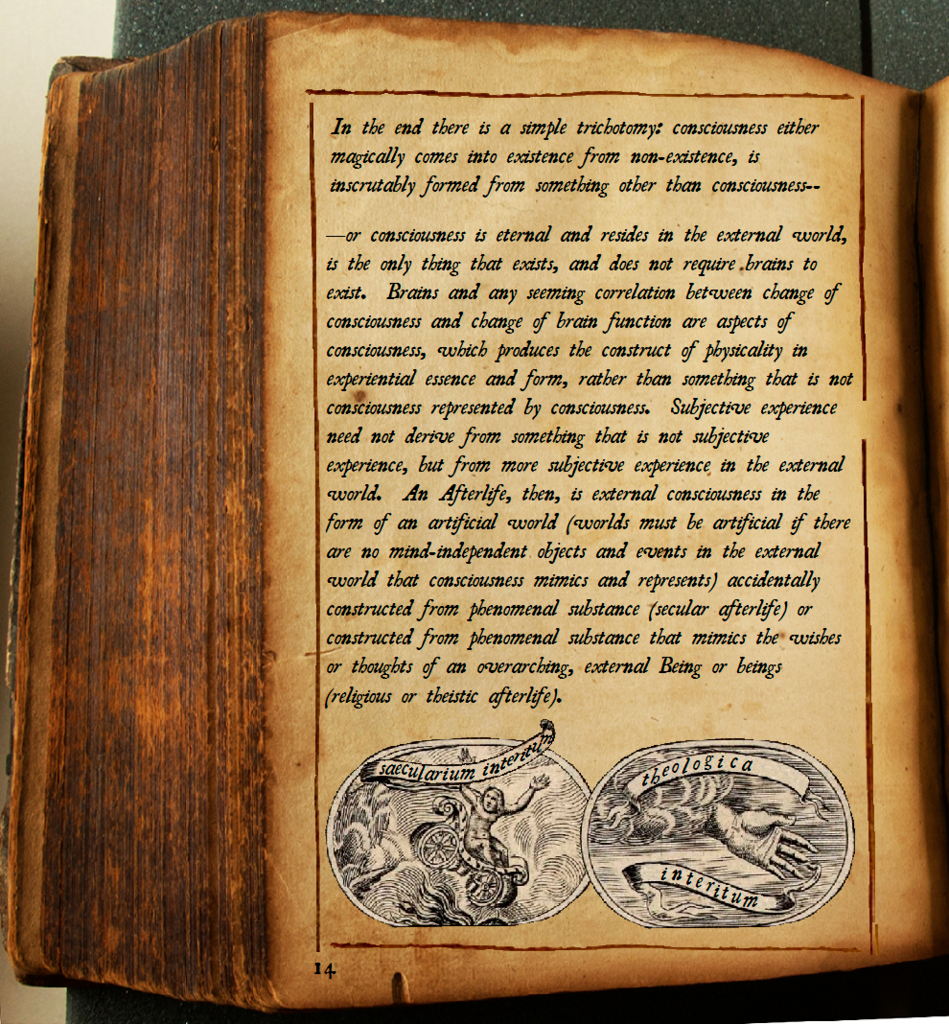 In the end there is a simple trichotomy: consciousness either
magically comes into existence from non-existence, is
inscrutably formed from something other than consciousness--
—or consciousness is eternal and resides in the external world,
is the only thing that exists, and does not require brains to
exist. Brains and any seeming correlation between change of
consciousness and change of brain function are aspects of
consciousness, which produces the construct of physicality in
experiential essence and form, rather than something that is not
consciousness represented by consciousness. Subjective experience
need not derive from something that is not subjective
experience, but from more subjective experience in the external
world. An Afterlife, then, is external consciousness in the
form of an artificial world (worlds must be artificial if there
are no mind-independent objects and events in the external
world that consciousness mimics and represents) accidentally
constructed from phenomenal substance (secular afterlife) or
constructed from phenomenal substance that mimics the wishes
or thoughts of an overarching, external Being or beings
(religious or theistic afterlife).
saecularium interitum
theologica
interitum
14